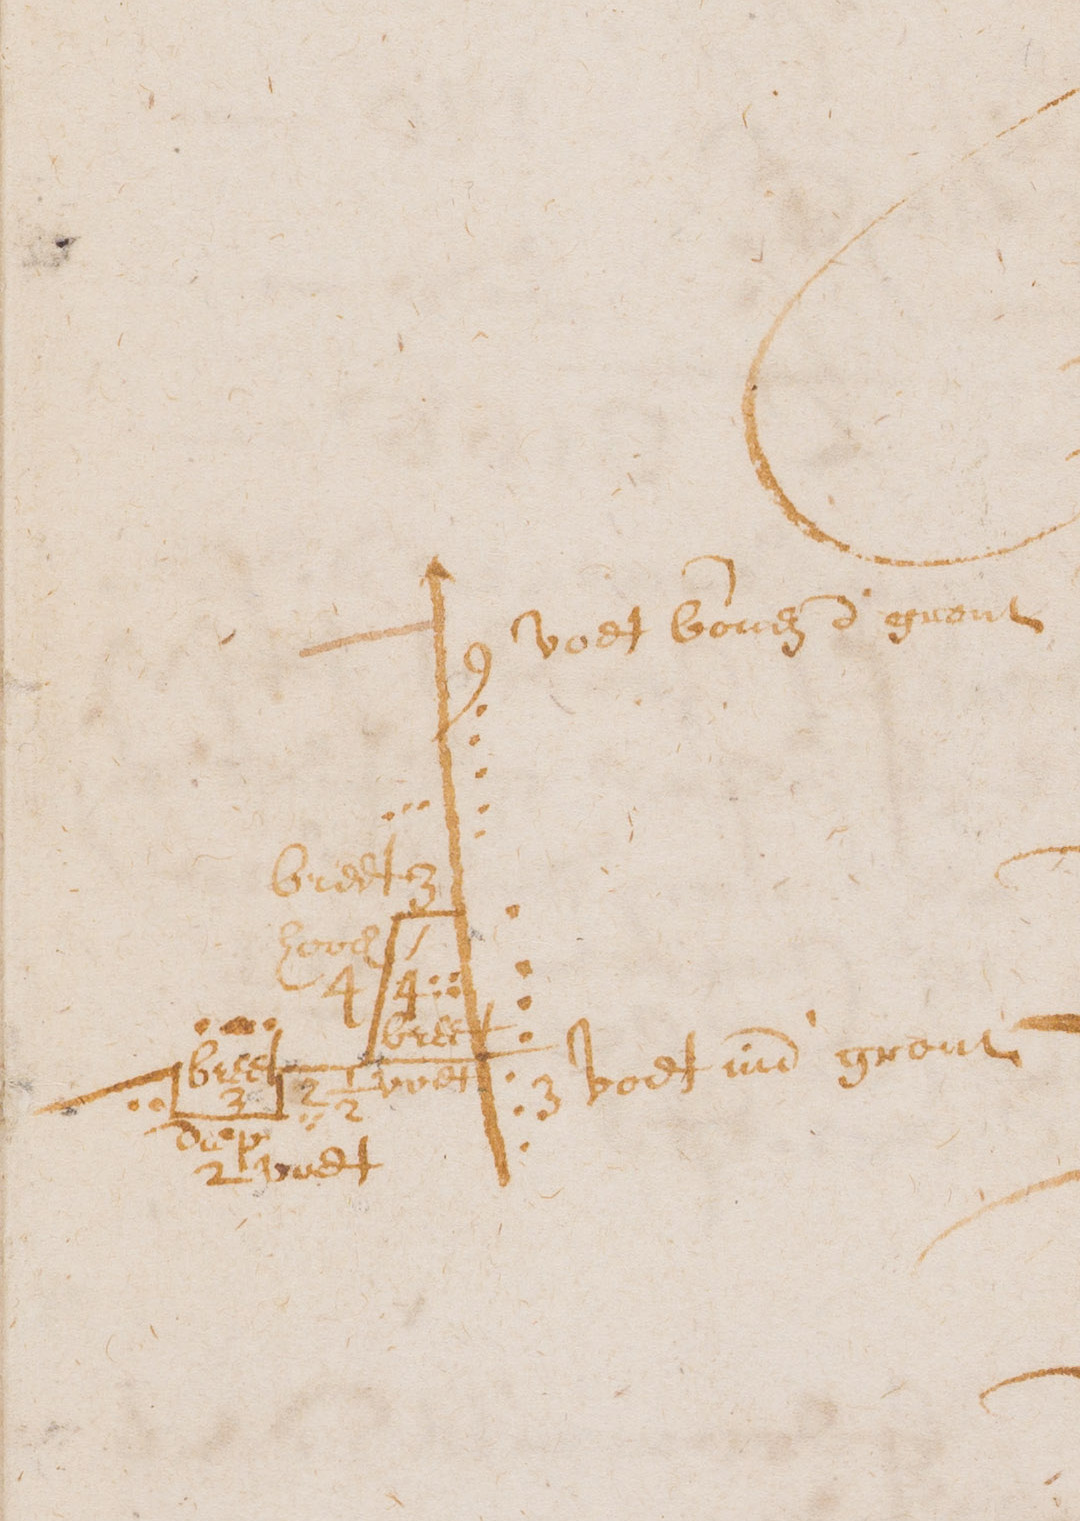 9 voet bouen d' gront
breet 3
hooch
4 4
breet
breet
3
2 1/2 voet
3 voet ind' gront
diep
2 voet